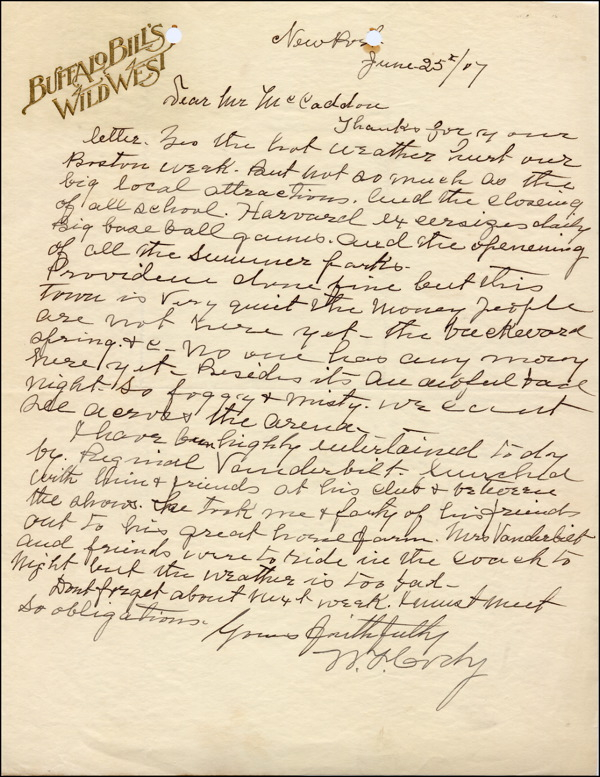 BUFFALO BILL'S
WILD WEST
New Port
June 25th/07
Dear Mr McCaddon
Thanks for your
letter. Yes the hot weather hurt our
Boston week. But not so much as the
big local attractions. And the closing
of all school. Harvard exersizes daily
Big base ball games. and the openening
of all the summer parks.
Providence done fine but this
town is very quiet the money people
are not here yet - the backward
spring. &c - No one has any money
here yet. Besides its an awful bad
night. So foggy & misty. We cant
see across the arena.
I have been highly entertained to day
by. Reginal Vanderbilt. Lunched
with him & friends at his club & between
the shows. he took me & party of his friends
out to his great horse farm. Mrs Vanderbilt
and friends were to ride in the coach to
night but the weather is too bad -
Dont forget about next week. I must meet
so obligations.
Yours faithfully
W. F. Cody